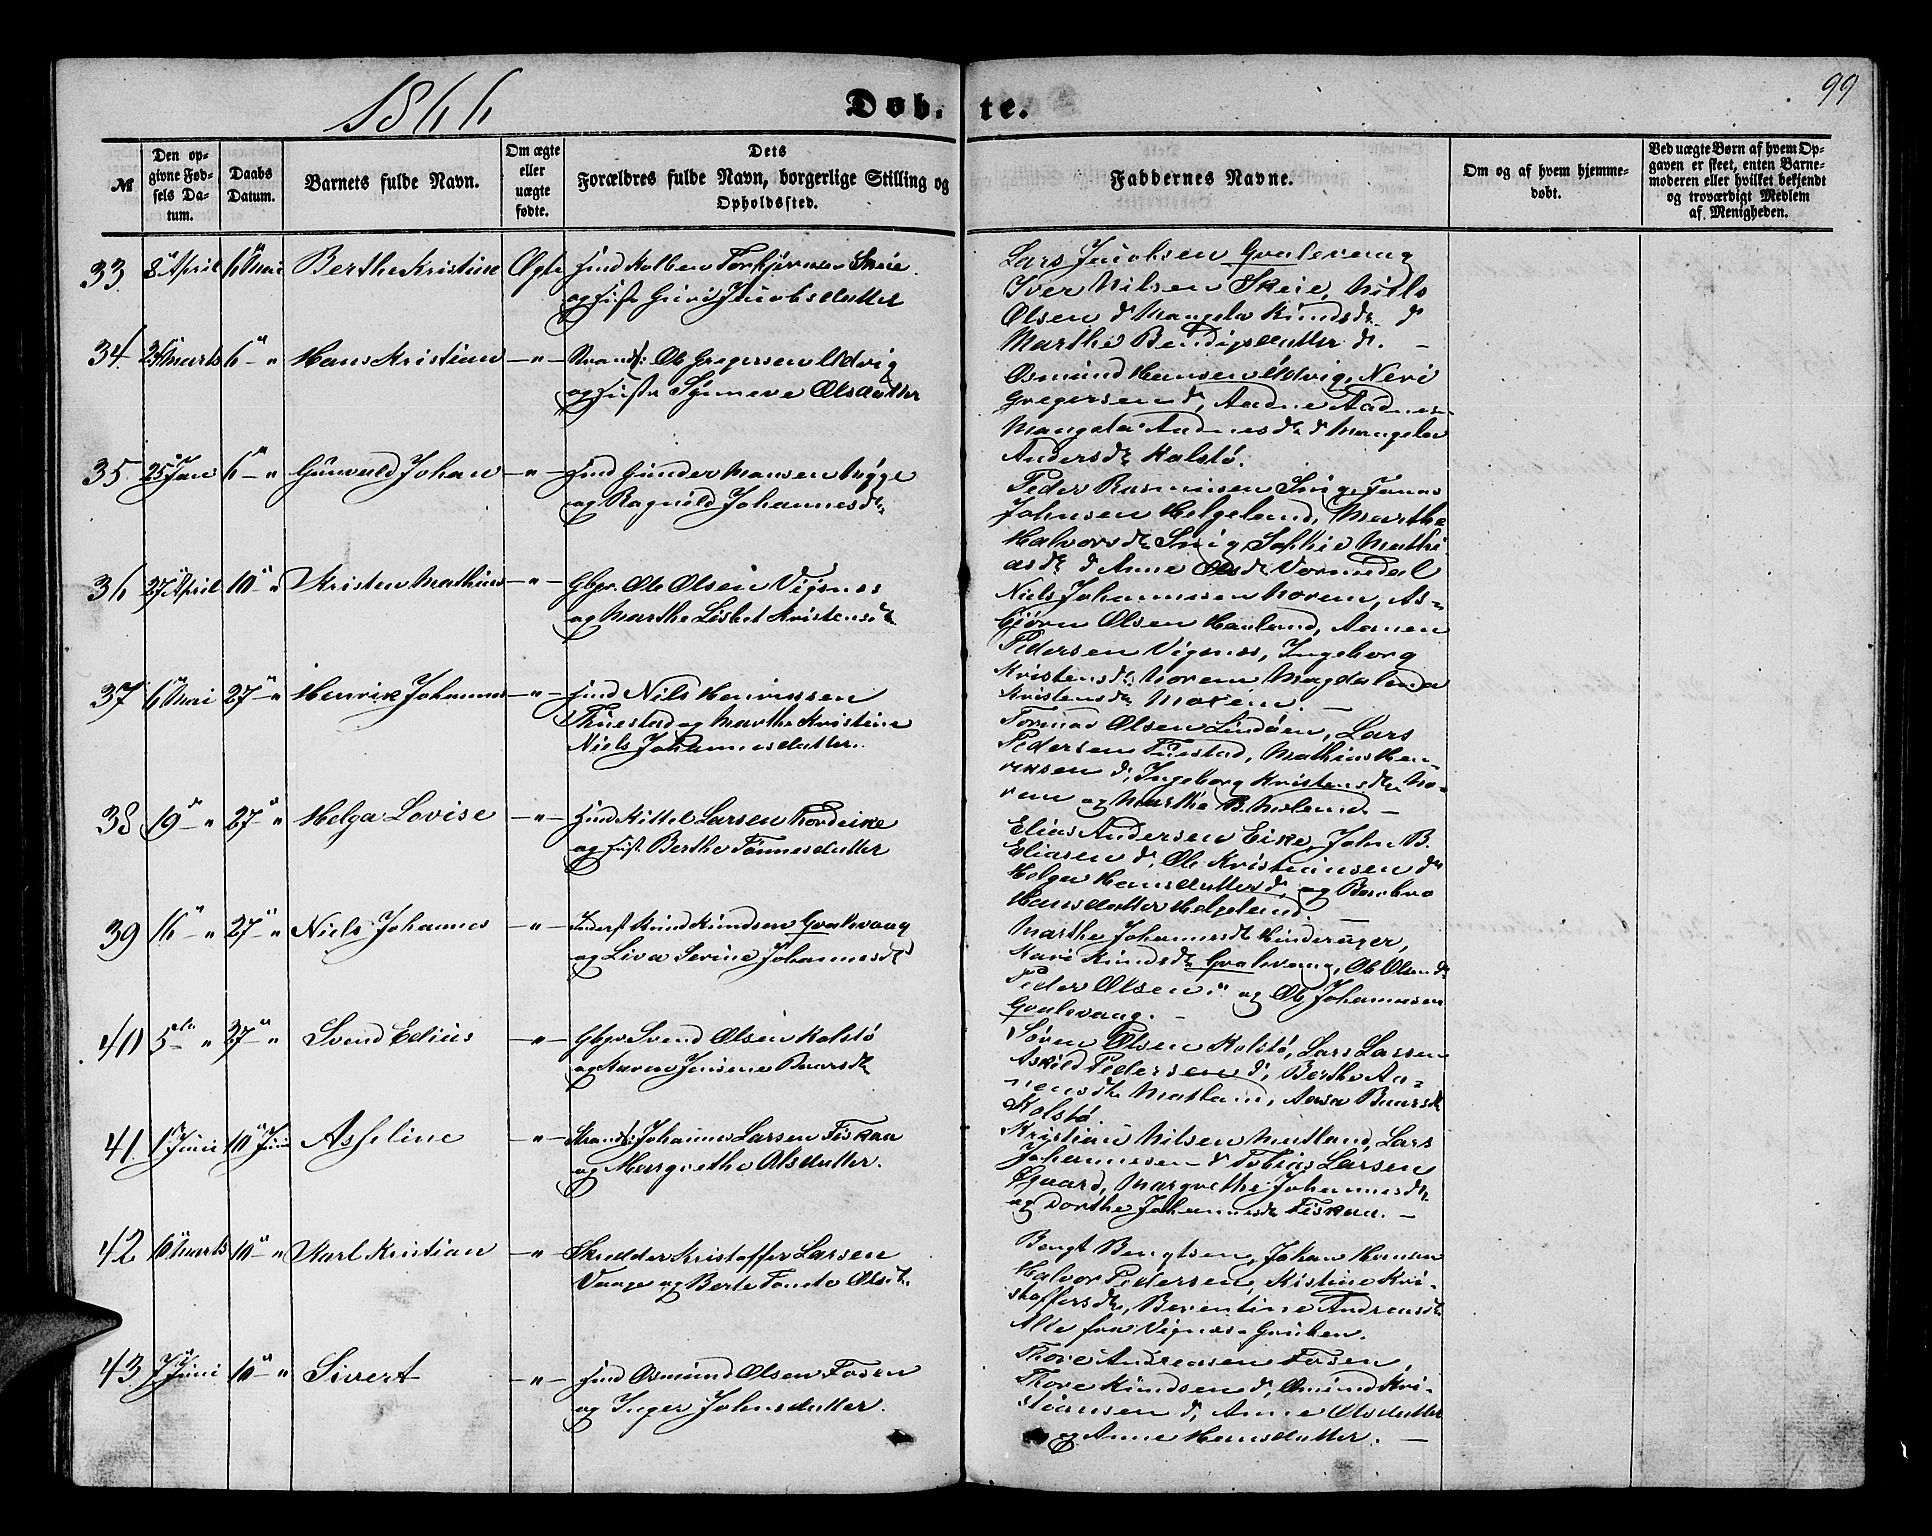 1866
99
Døb-te.
№
Den opgivne Fødsels Datum.
Daabs Datum.
Barnets fulde Navn.
Om ægte eller uægte fødte.
Dets Forældres fulde Navn, borgerlige Stilling og Opholdssted.
Faddernes Navne.
Om og af hvem hjemmedøbt.
Ved uægte Børn af hvem Opgaven er skeet, enten Barnemoderen eller hvilket bekjendt og troværdigt Medlem af Menigheden.
33 8 April 6 Mai Berthe Kristine Ægte
Torkjørnsen Skeie
og Guri Jacobsdatter
Lars Jacobsen Gvalevaag
Iver Nilsen Skeie, Niels
Olsen d Mangela Knudsdr d
Marthe Bendixsdatter d. –
34. 24 Marts 6 – " Hans Kristian – " –
Strands: Ole Gregersen Udvig
og Synneve Olsdatter
Osmund Hansen Udvig, Neri
Gregersen d, Aadne Aadnes-
Mangela Aadnesdr d Mangela
Andersdr Kalstø.
35 25 Jan 6 – " Gunvald Johan – " –
Gunder Mansen
og Ragnild Johannesdr
Peder Rasmusen Jonas
Johnsen Helgeland, Marthe
Halvorsdr Sophie Mathi
asdr d Anne Olsdr Vormedal
36 27 April 10 – " Kristen Mathias – " –
Gbgr. Ole Olsen Vigsnes
og Marthe Lisbet Kristensdr
Niels Johannessen Norem, As-
bjørn Olsen Hauland, Aamen
Pedersen Vigsnes, Ingeborg
Kristensdr Norem Magdalena
Kristensdr Norem. –
37 6 Mai 27 – " Henrik Johannes – " –
Nils Henriksen
Thuestad og Marthe Kristine
Niels Johannesdatter.
Tormod Olsen Lindøen, Lars
Pedersen Tuestad, Mathias Hen-
riksen d, Ingeborg Kristensdr No-
rem og Marthe B. –
38 19 – " 27 – " Helga Lovise – " –
Kittel Larsen Nordeike
og Berthe Tønnesdatter
Elias Andersen Eike, John B.
Eliasen d, Ole Kristiansen d
Helga Hansdatter d og Barbro
Hansdatter Helgeland –
39 16 – " 27 – " Niels Johannes – " –
Knud Knudsen Gvalevaag
og Liva Serine Johannesdr
Marthe Johannesdr Hinderager,
Kari Knudsdr Gvalevaag, Ole Olsen d
Peder Olsen " og Ole Johannesen
Gvalevaag. –
40 5 – " 27 – " Svend Edius – " –
Gbgr Svend Olsen Kalstø
og Jensine Baarsdr
Søren Olsen Kalstø, Lars Larsen
Askild Pedersen d, Berthe An-
nensdr Matland, Aasa Baarsdr
Kalstø
41. 1 Juni 10 Juni Asseline – " –
Strands: Johannes Larsen Fiskaa
og Margrethe Olsdatter.
Kristian Nilsen Matland, Lars
Johannessen d Tobias Larsen
Øgaard, Margrethe Johannesdr
og Dorthe Johannesdr Fiskaa. –
42 6 Marts 10 – " Karl Kristian – " –
Skrædder Kristoffer Larsen
Vaage og Berte Tonte Olsdr
Bengt Bengtsen, Johan Hansen
Halvor Pedersen, Kistine Kri-
stoffersdr, Berentine Andreasdr
Alle fra Vigsnes-Gruben.
43 7 Juni 10 – " Sivert – " –
Osmund Olsen Fosen
og Inger Johnsdatter.
Thore Andreasen Fosen,
Thore Knudsen d, Osmund Kri-
stiansen d, Anne Olsdatter
og Anne Hansdatter. –